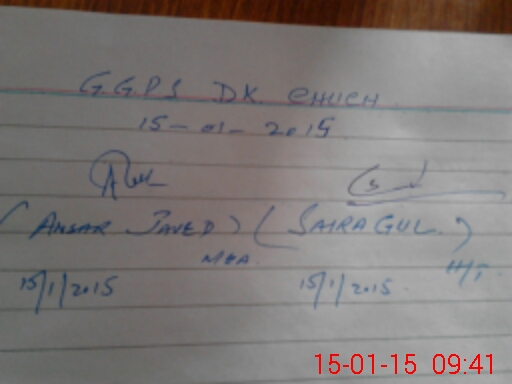 G.G.P.S DK. CHUCH
15-01-2015
(ANSAR JAVED) (SAIRA GUL)
MEA. H/T
15/1/2015 15/1/2015.
15-01-15 09:41